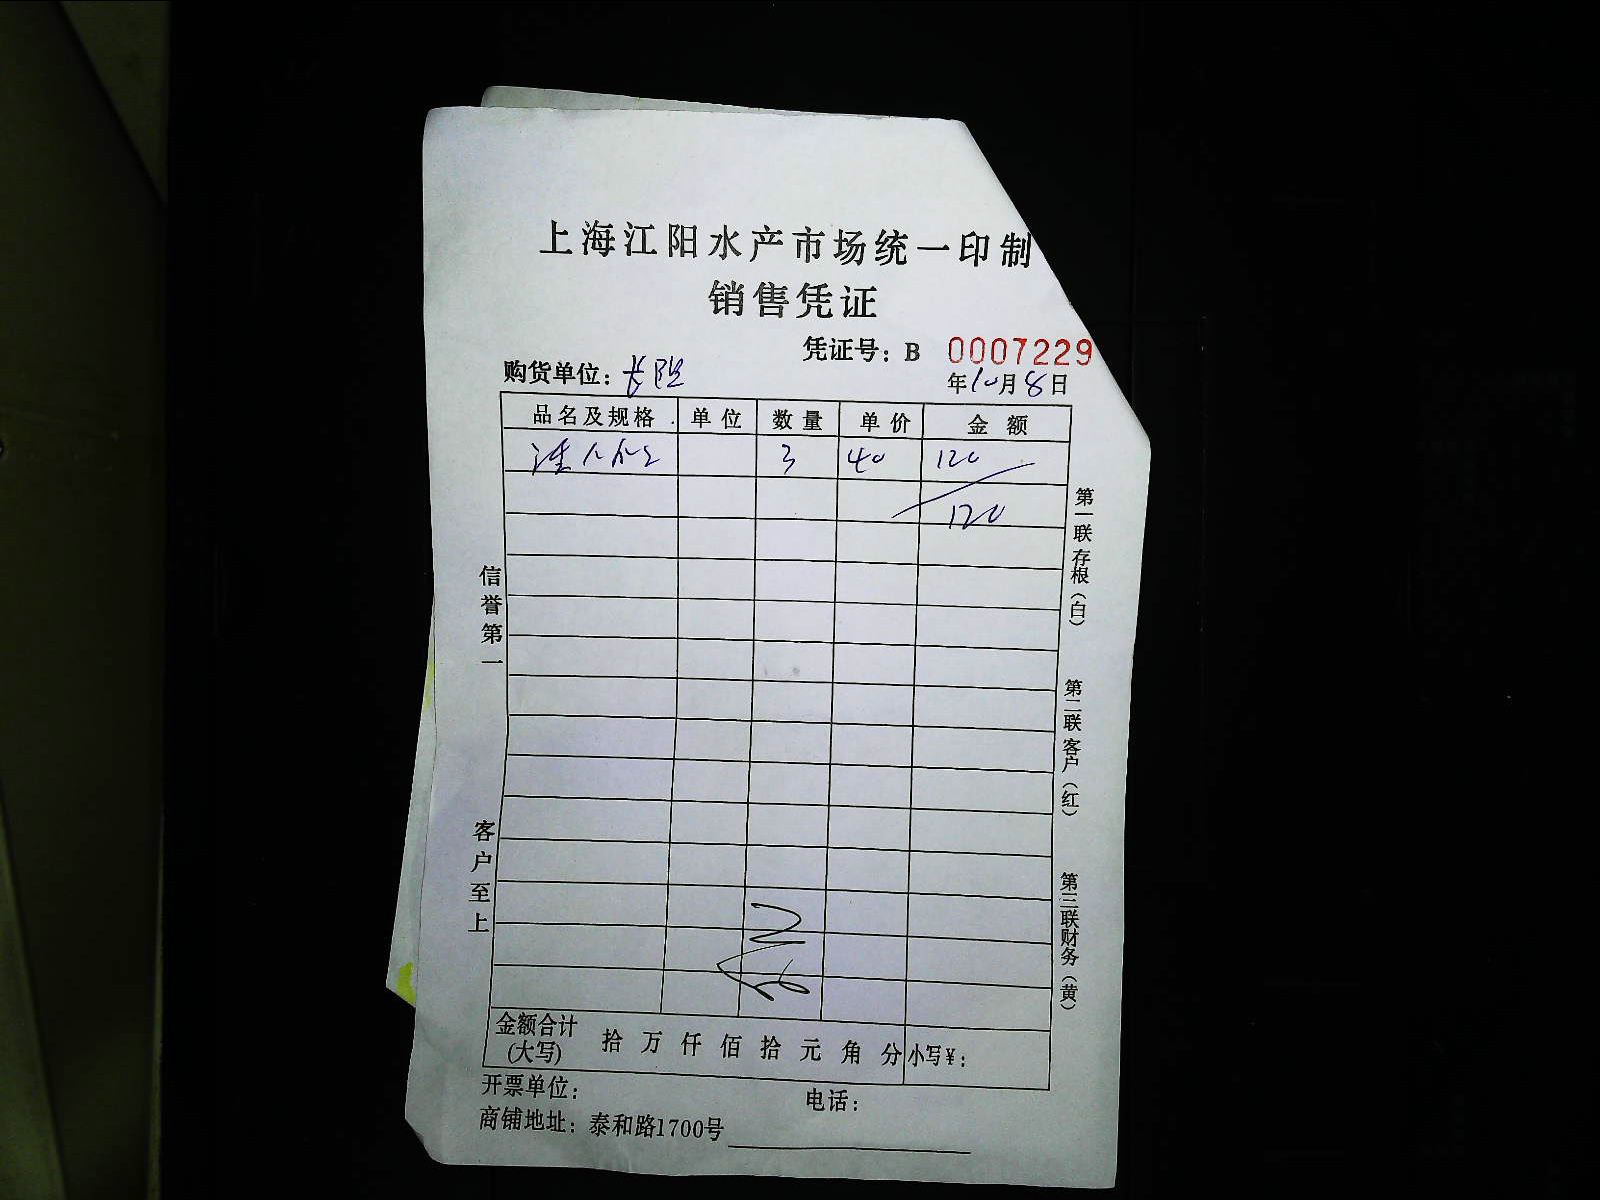 上海江阳水产市场统一印制
销售凭证
凭证号：B 0007229
购货单位：长
年10月8日
品名及规格 单位 数量 单价 金额
3 40 120
120
信誉第一
客户至上
第一联存根（白）
第二联客户（红）
第三联财务（黄）
金额合计(大写) 拾万仟佰拾元角分 小写¥：
开票单位： 电话：
商铺地址：泰和路1700号